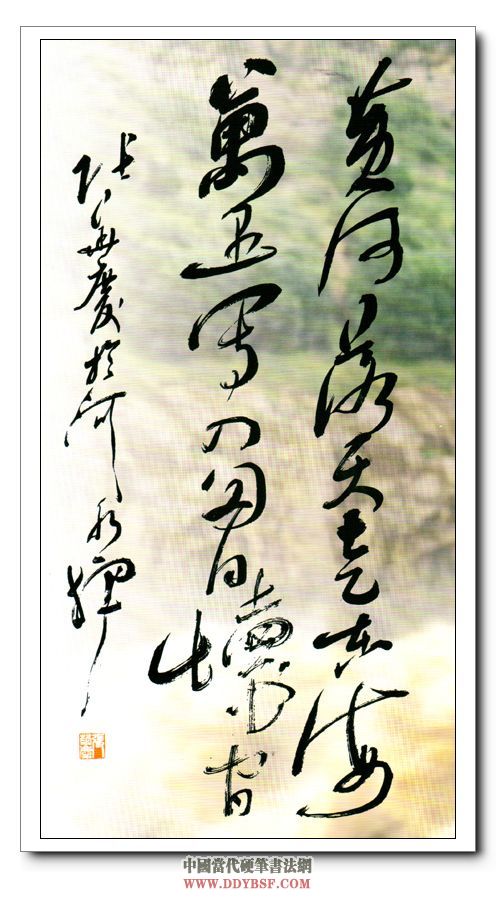 黄河落天走東海
萬里寫入胸懷間
張華慶於
中國當代硬筆書法網
WWW.DDYBSF.COM